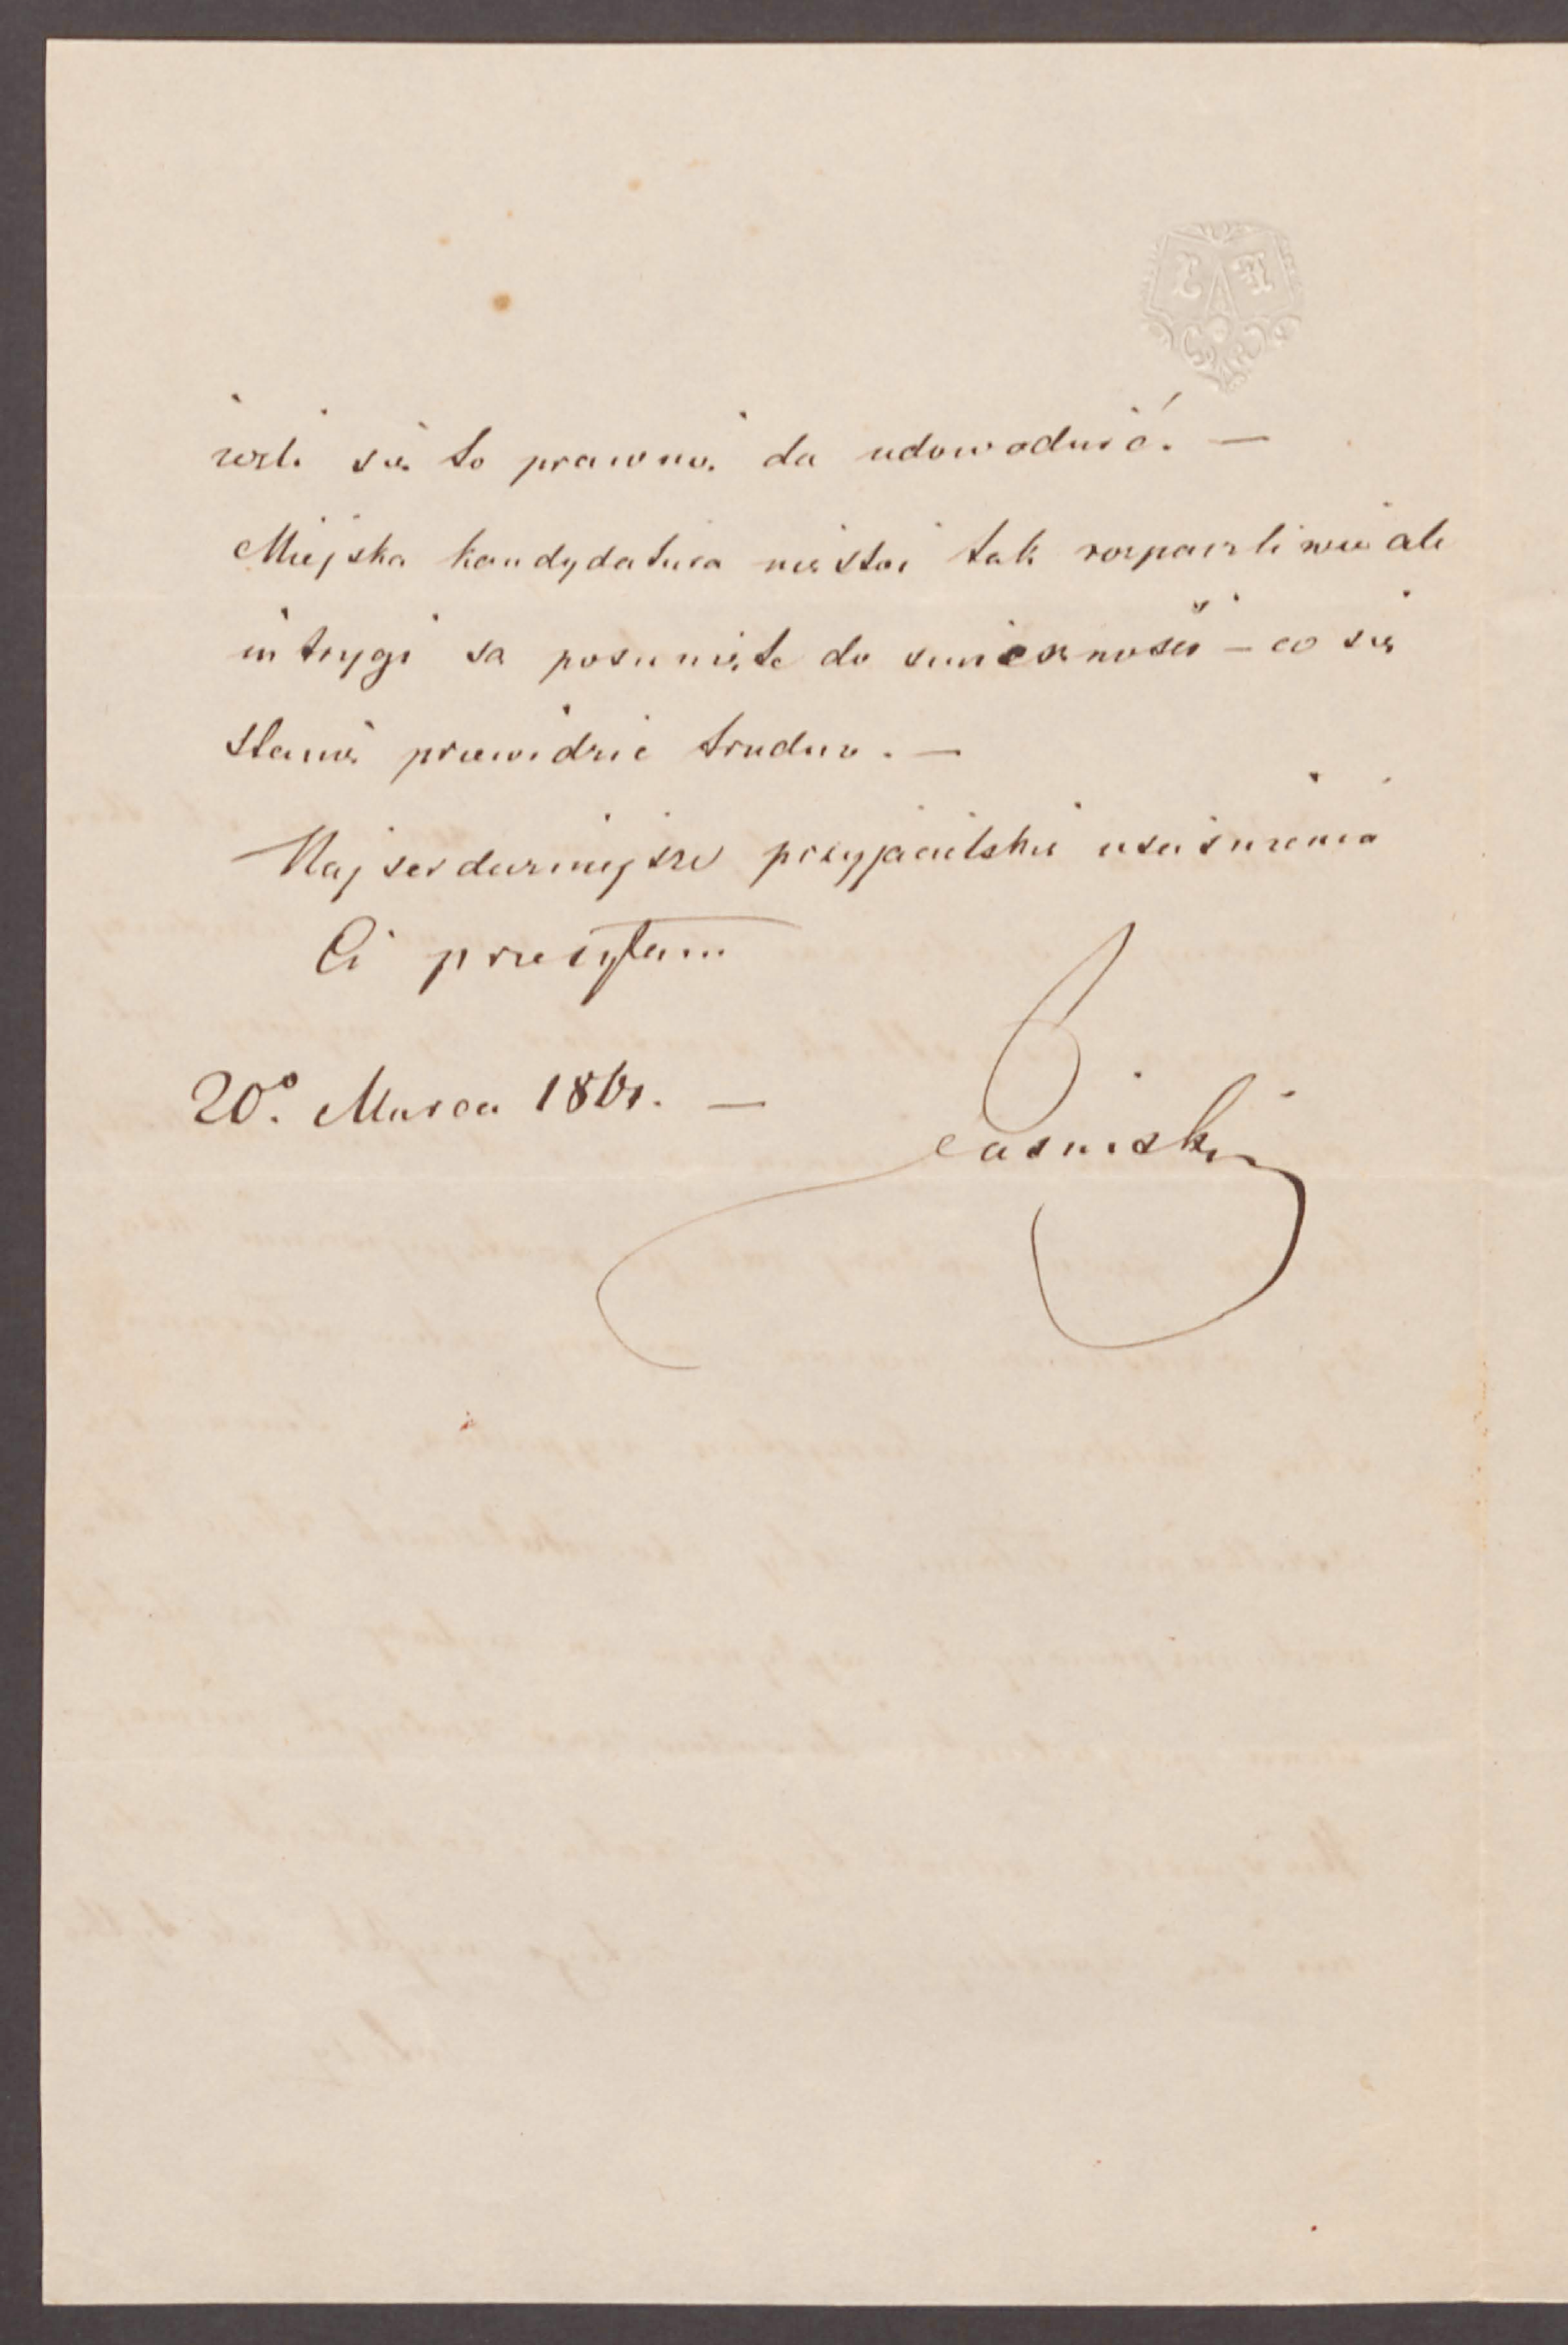 jeżeli się to prawnie da udowodnić. —
Miejska kandydatura nie stoi tak rozpaczliwie ale
intrygi są posunięte do — co się
stanie przewidzić trudno. —
Najserdeczniejsze przyjacielskie uściśnienia
Ci przesyłam
20° Marca 1861. —